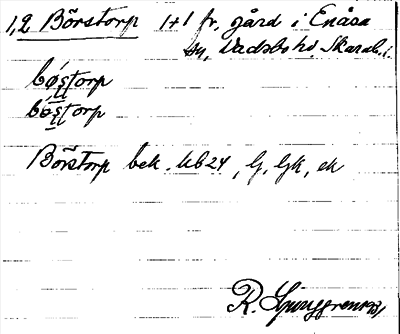 1,2 Börstorp 1+1 fr. gård i Enåsa
sn, Vadsbo hd. Skarab. l.
bo̗s̭torp
bö̗s̭torp
Börstorp bek. Ub 24, G, Gk, ek
R. Ljunggren